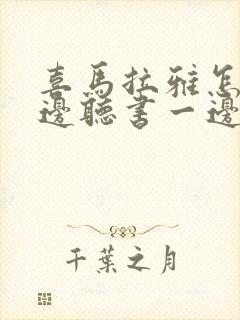 喜馬拉雅怎
邊聽書一邊
千葉之月